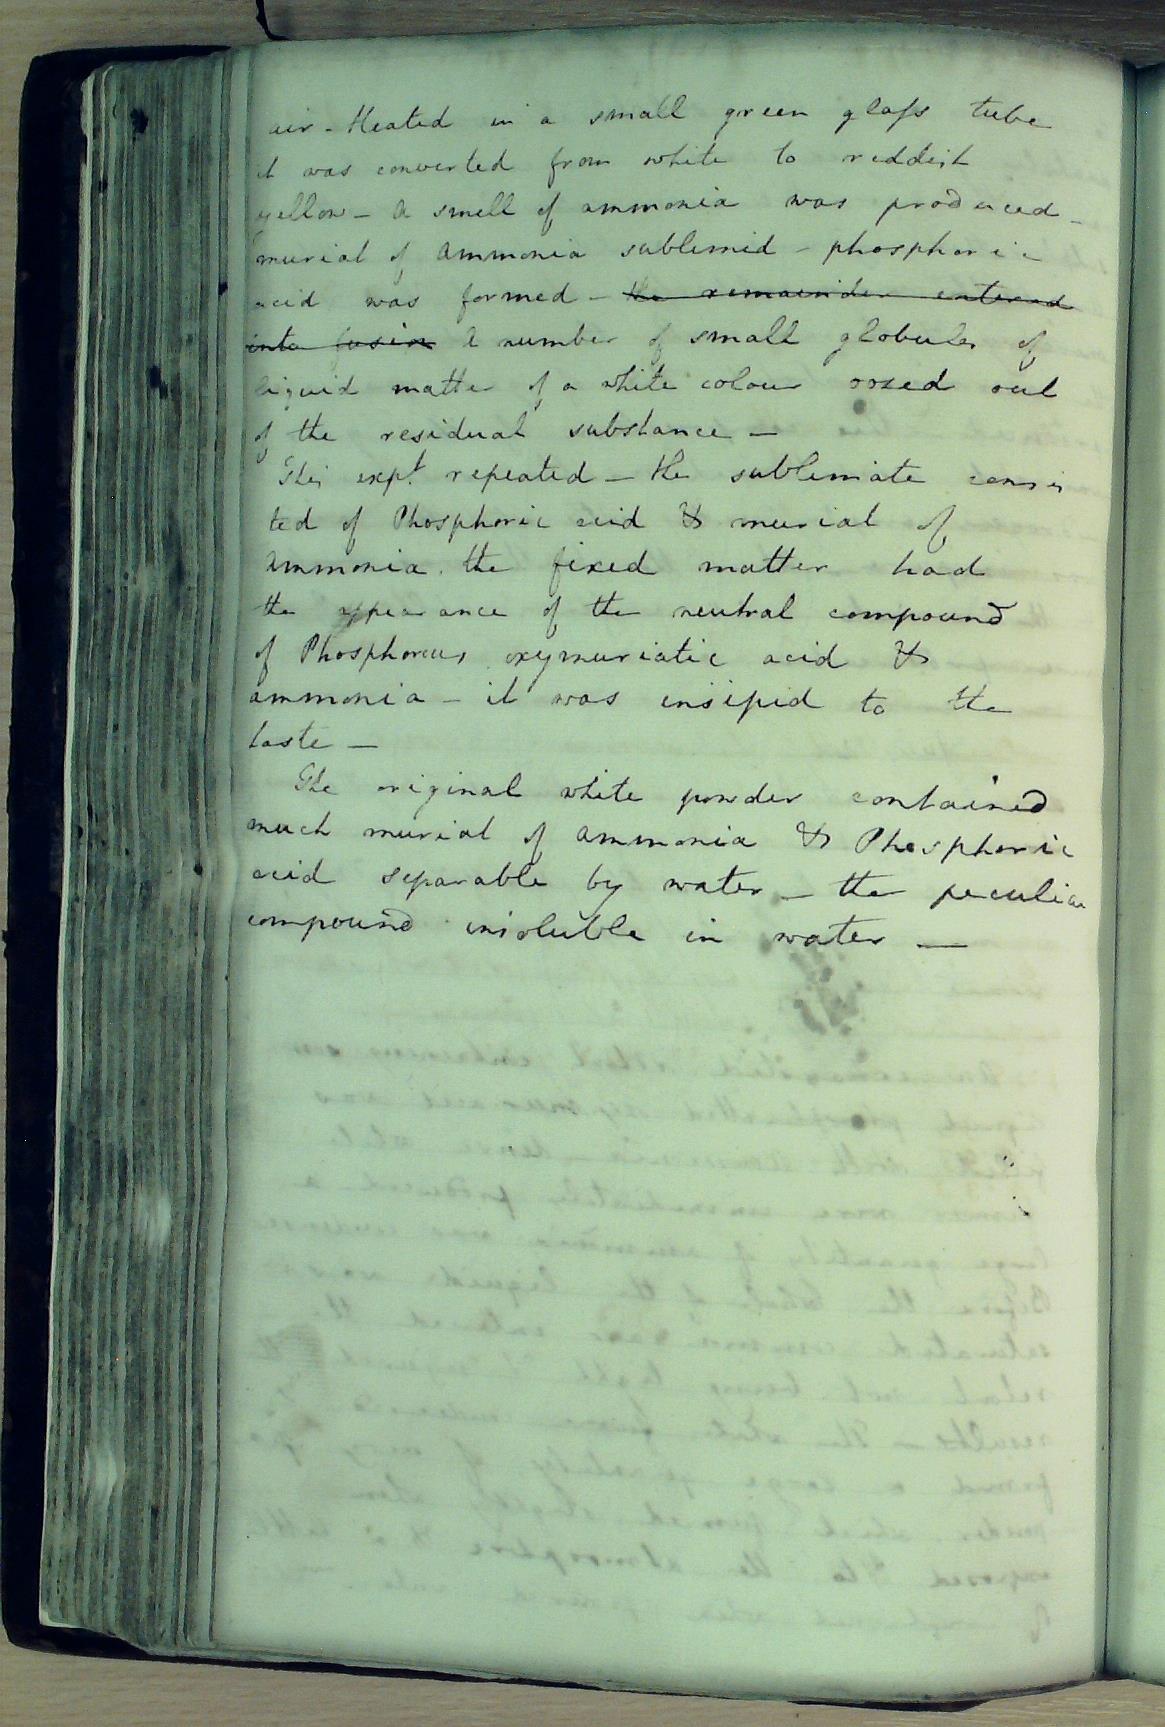 air - Heated in a small green glaſs tube
it was converted from white to reddish
yellow - A smell of ammonia was produced -
muriat of Ammonia sublimed - phosphoric
acid was formed - the remainder entered
into fusion A number of small globules of
liquid matter of a white colour oozed out
of the residual substance -
This expt. repeated - the sublimate consis
ted of Phosphoric acid & muriat of
Ammonia. the fixed matter had
the appearance of the neutral compound
of Phosphoreus oxymuriatic acid &
ammonia - it was insipid to the
taste -
The original white powder contained
much muriat of Ammonia & Phosphoric
acid separable by water - the peculiar
compound insoluble in water -